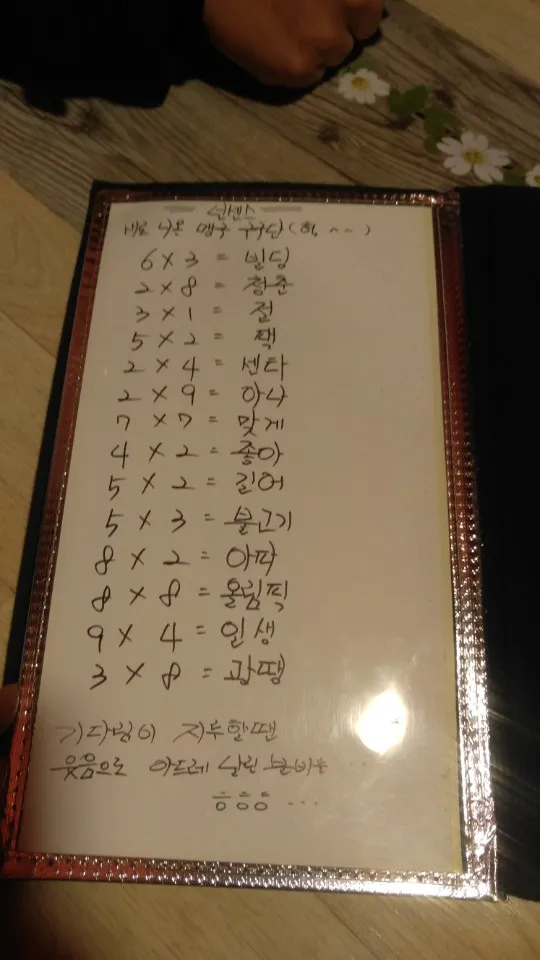 넌센스
새로 나온 맹구 구구단 (히, ~~)
6 X 3 = 빌딩
2 X 8 = 청춘
3 X 1 = 절
5 X 2 = 팩
2 X 4 = 센타
2 X 9 = 아나
7 X 7 = 맞게
4 X 2 = 좋아
5 X 2 = 길어
5 X 3 = 불고기
8 X 2 = 아파
8 X 8 = 올림픽
9 X 4 = 인생
3 X 8 = 광땡
기다림이 지루할땐
웃음으로 아드레날린 분비를 ...
ㅎㅎㅎ ...